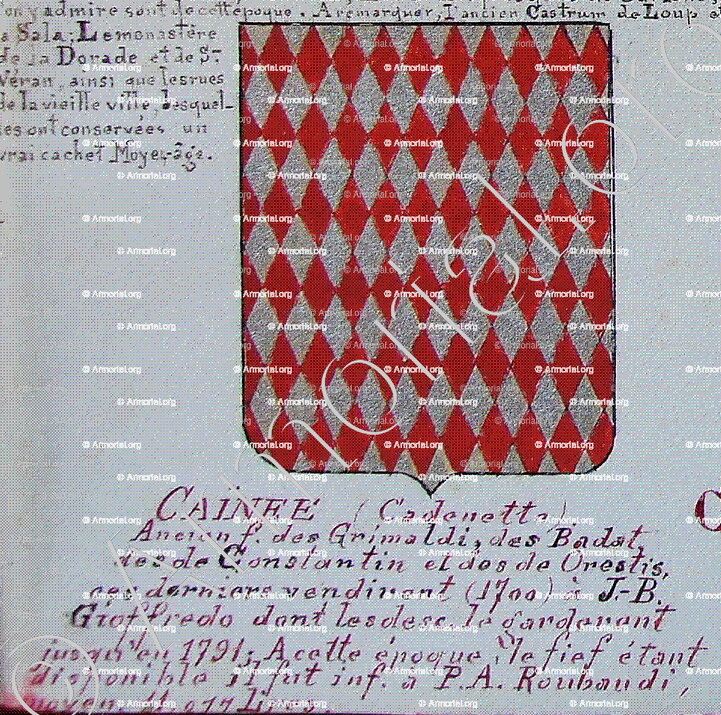 on y admire sont de cet époque. A remarquer, l'ancien Castrum de Loup et
a Sala; Le monastère
de la Dorade et de St
Véran, ainsi que les rues
de la vieille ville, desquel-
les ont conservées un
vrai cachet Moyen-âge.
CAINÉE (Cadenette)
Ancien f. des Grimaldi, des Badat,
des de Constantin et des de Orestis,
ces derniers vendirent (1700) à J.-B.
Gioffredo dont les desc. le gardèrent
jusqu'en 1791; A cette époque, le fief étant
disponible il fut inf. à P.A. Roubaudi,
© Armorial.org